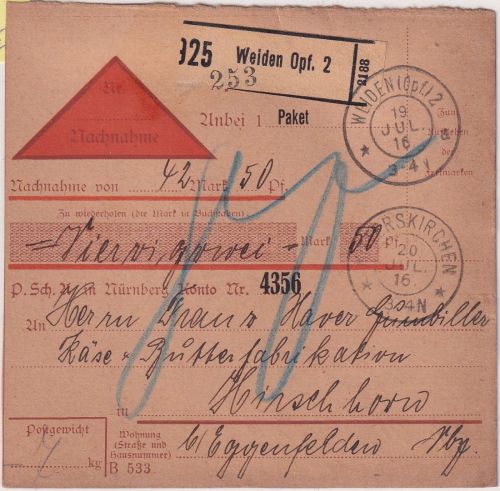 025 Weiden Opf. 2
253
8188
Nr.
Nachnahme
Anbei 1 Paket
WEIDEN (Opf.) 2
19
JUL.
16
3-4 N
a
Zum
der
Freimarken
Nachnahme von 42 Mark 50 Pf.
Zu wiederholen (die Mark in Buchstaben)
= Vierzigzwei = Mark 50 Pf.
20
JUL.
16
RSKIRCHEN
P. Sch. A. in Nürnberg Konto Nr. 4356
An Herrn Franz Xaver
Käse & Butterfabrikation
in Hirschhorn
Postgewicht
7 kg
Wohnung
(Straße und
Hausnummer)
b/Eggenfelden Nby.
B 533.